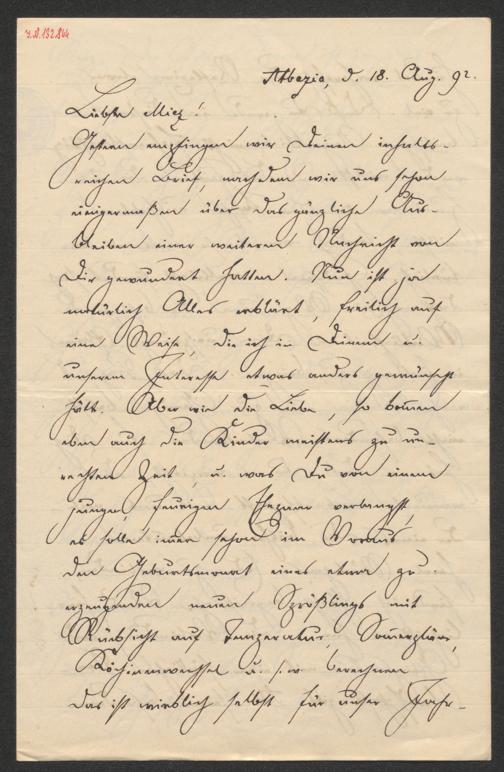 I.N. 132.844
Abbazia, d. 18. Aug. 92.
Liebste Miez!
Gestern empfingen wir Deinen inhalts-
reichen Brief, nachdem wir uns schon
einigermaßen über das gänzliche Aus-
bleiben einer weiteren Nachricht von
Dir gewundert hatten. Nun ist ja
natürlich Alles erklärt, freilich auf
eine Weise, die ich in Deinem u.
unserem Interesse etwas anders gewünscht
hätte. Aber wie die Liebe, so kom̅en
eben auch die Kinder meistens zu un-
rechten Zeit, u. was Du von einem
jungen, feurigen Ehepaar verlangst,
es solle im̅er schon im Voraus
den Geburtsmonat eines etwa zu
erzeugenden neuen Sprößlings mit
Rücksicht auf Temperatur, Som̅erpläne,
Köchinwechsel u. s. w. berechnen
das ist wirklich selbst für unser Jahr-